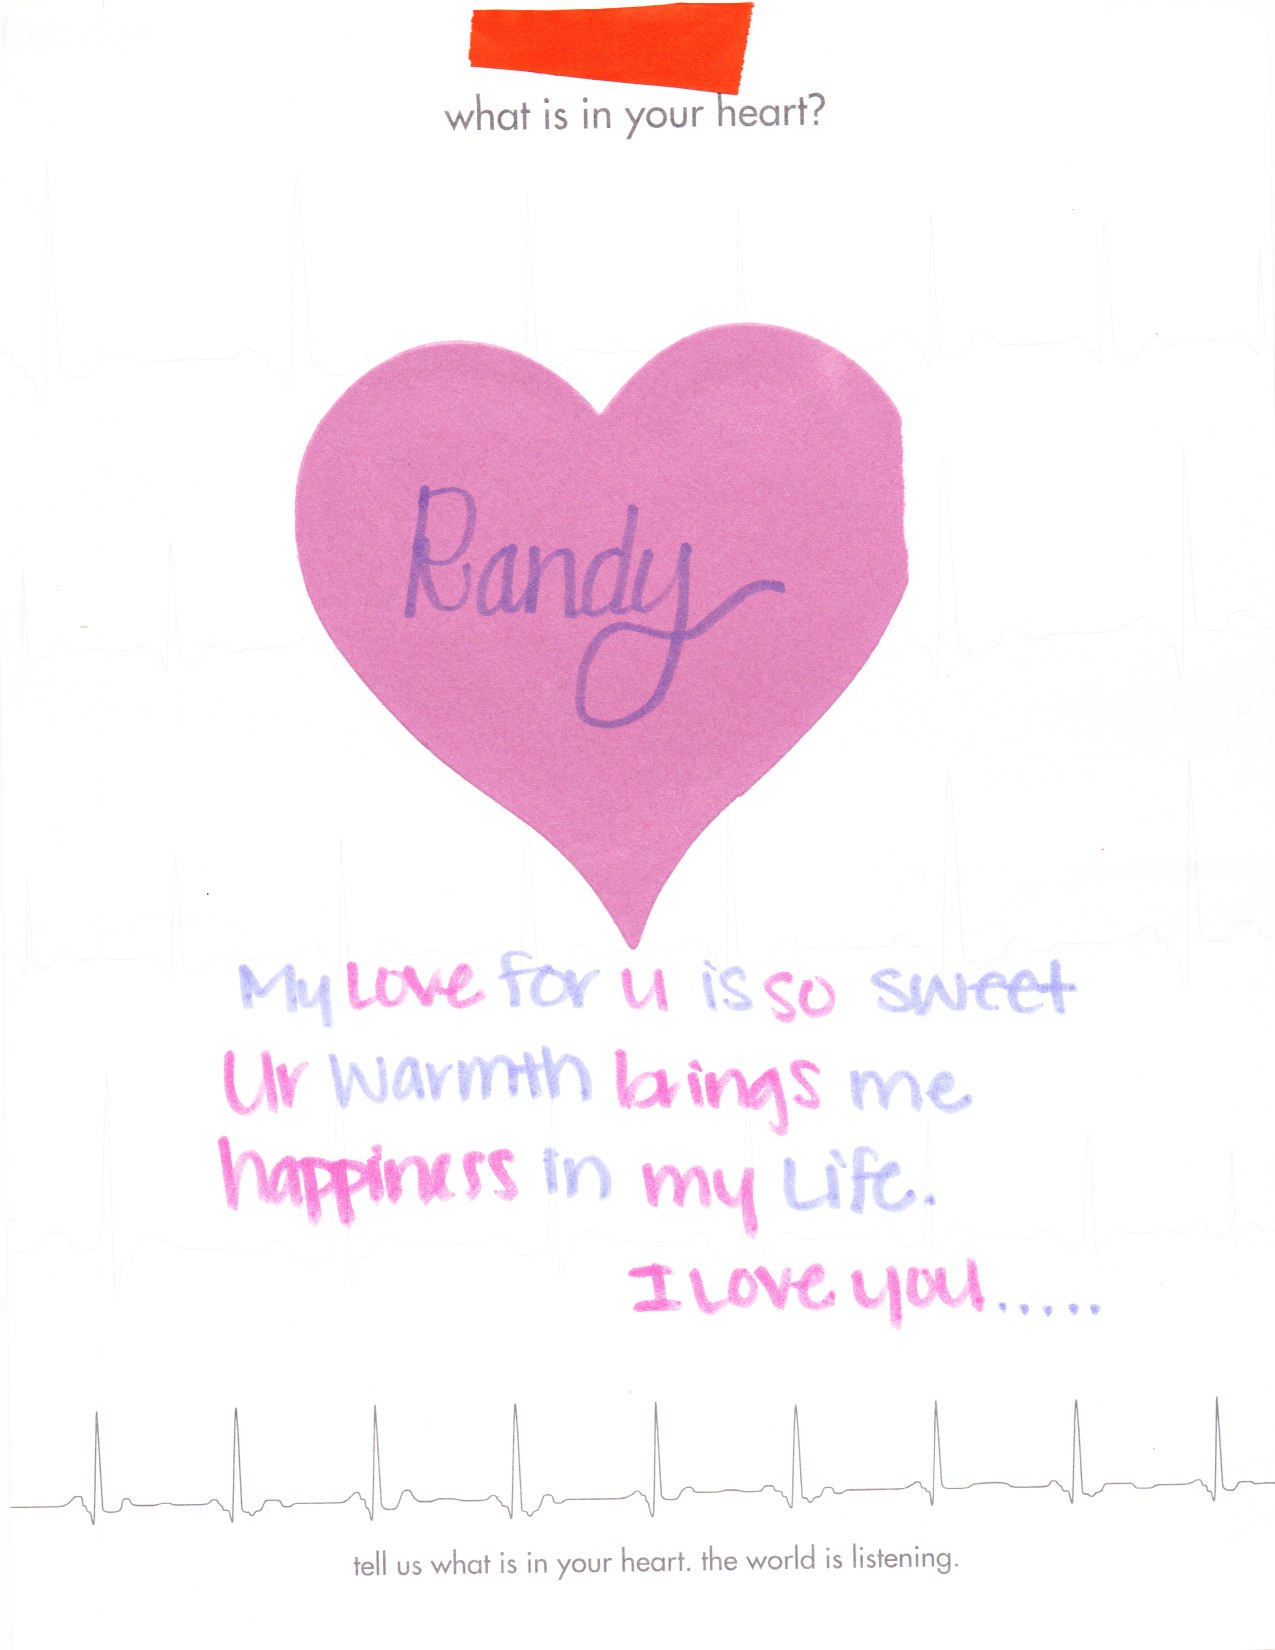 what is in your heart?
Randy
My Love for u is so sweet
Ur warmth brings me
happiness in my Life.
I Love you.....
tell us what is in your heart. the world is listening.